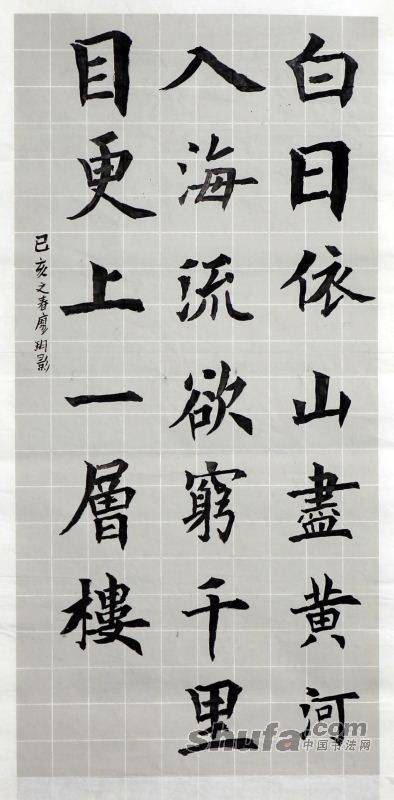 白日依山盡黄河
入海流欲窮千里
目更上一層樓
己亥之春廖玥影
shufa.com
中国书法网